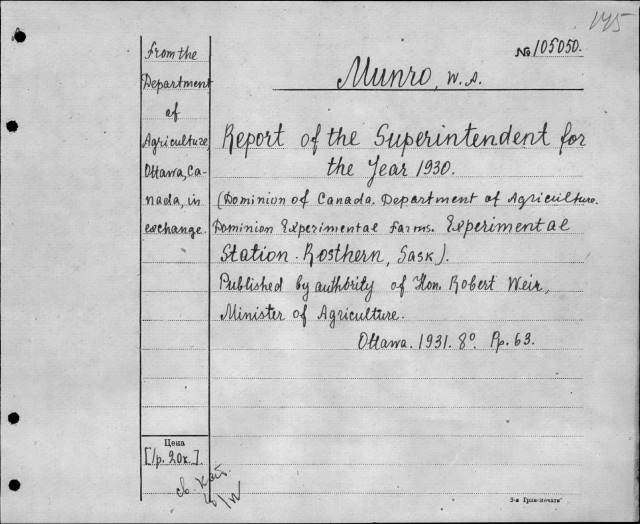 145
№ 105050.
Munro, W.A.
From the
Department
of
Agriculture,
Ottawa, Ca-
nada, in
exchange.
Report of the Superintendent for
the Year 1930.
(Dominion of Canada. Department of Agriculture.
Dominion Experimental Farms. Experimental
Station - Rosthern, Sask).
Published by authority of Hon. Robert Weir,
Minister of Agriculture.
Ottawa. 1931. 8°. Pp. 63.
Цена
[1р. 20к.].
св. кат.
3-я Грив-печать